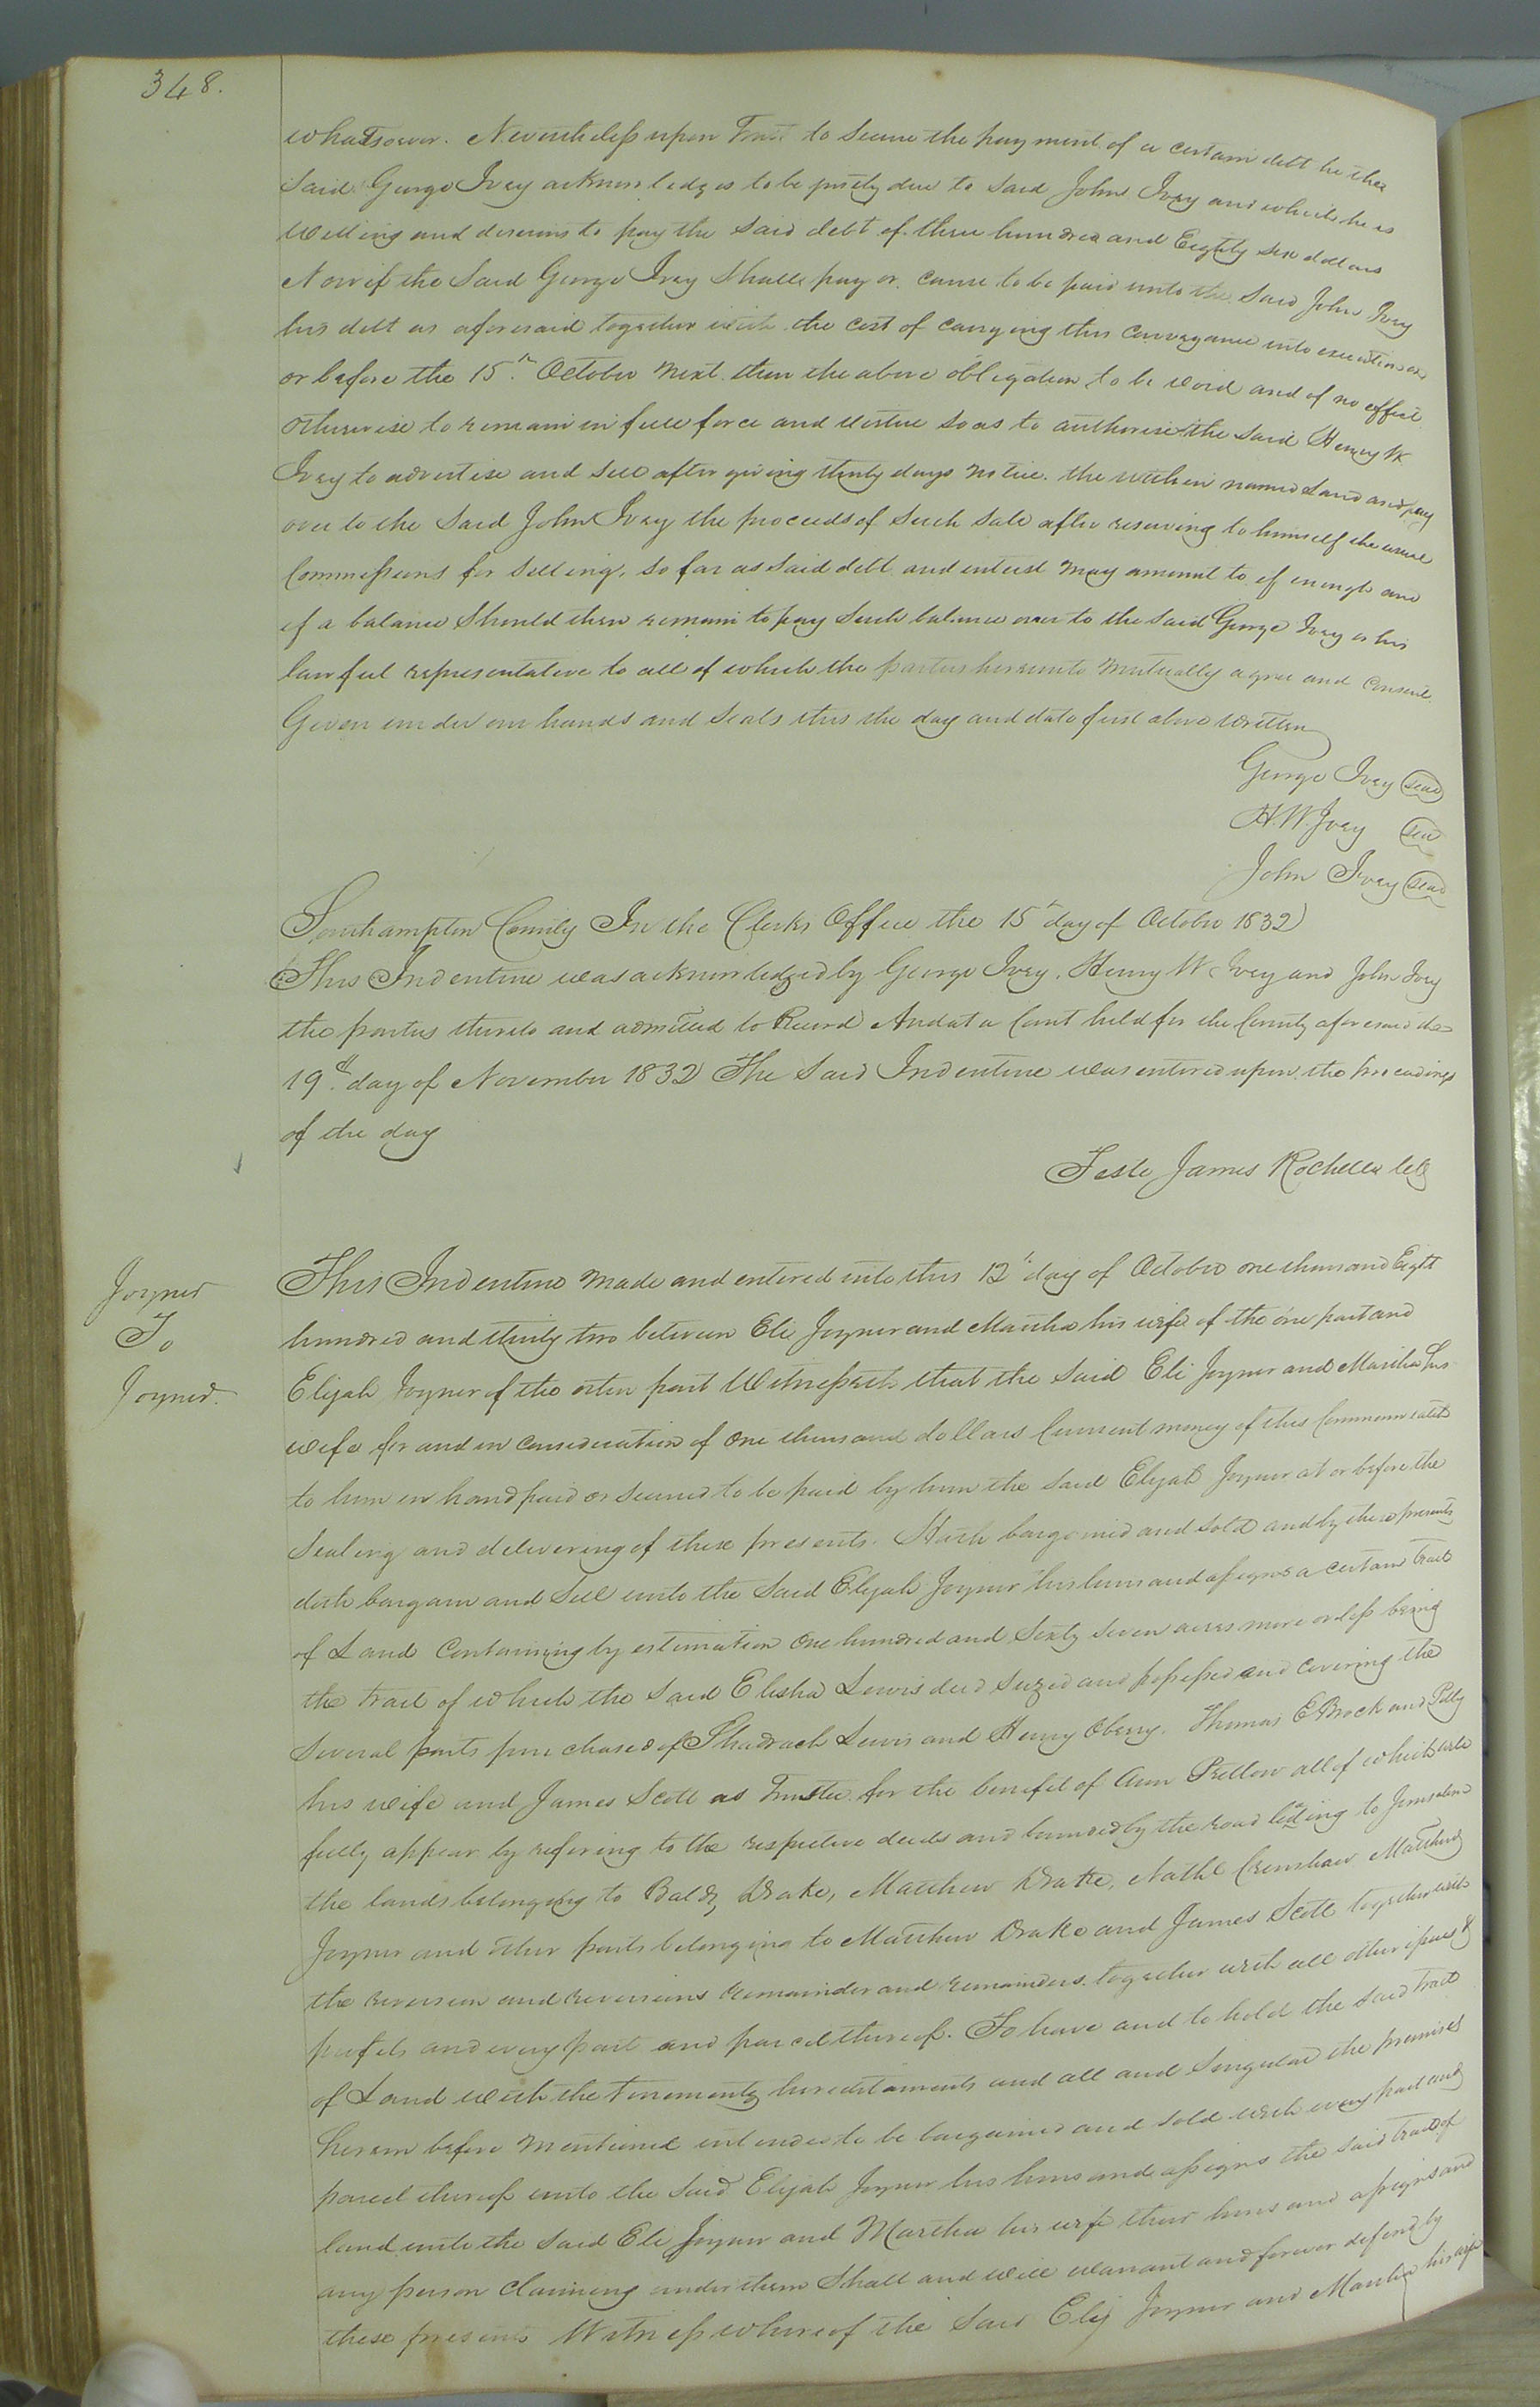 348.
whatsoever. Nevertheless upon Trust to secure the payment of a certain debt he the
said George Ivey acknowledges to be justly due to said John Ivey and which he is
willing and desirous to pay the said debt of three hundred and Eighty six dollars
Now if the said George Ivey shall pay or cause to be paid unto the said John Ivey
his debt as aforesaid together with the cost of carrying this conveyance into execution on
or before the 15th October next then the above obligation to be void and of no effect
otherwise to remain in full force and virtue so as to authorise the said Henry W
Ivey to advertise and sell after giving thirty days notice. the within named Land and pay
over to the said John Ivey the proceeds of such sale after reserving to himself the usual
Commissions for selling, so far as said debt and interest may amount to if enough and
if a balance should then remain to pay such balance over to the said George Ivey or his
lawful representative to all of which the parties hereunto mutually agree and consent.
Given under our hands and seals this the day and date first above written
George Ivey seal
H. W. Ivey seal
John Ivey seal
Southampton County In the Clerks Office the 15th day of October 1832
This Indenture was acknowledged by George Ivey, Henry W Ivey and John Ivey
the parties thereto and admitted to Record And at a Court held for the County aforesaid the
19th day of November 1832 The said Indenture was entered upon the proceedings
of the day
Teste James Rochelle clk
Joyner
To
Joyner.
This Indenture made and entered into this 12th day of October one thousand Eight
hundred and thirty two between Eli Joyner and Martha his wife of the one part and
Elijah Joyner of the other part Witnesseth that the said Eli Joyner and Martha his
wife for and in consideration of one thousand dollars Current money of this Commonwealth
to him in hand paid or secured to be paid by him the said Elijah Joyner at or before the
sealing and delivering of these presents. Hath bargained and sold and by these presents
doth bargain and sell unto the said Elijah Joyner his heirs and assigns a certain tract
of Land Containing by estimation One hundred and Sixty seven acres more or less being
the tract of which the said Elisha Lewis decd seized and possessed and covering the
several parts purchased of Shadrach Lewis and Henry Oberry. Thomas E Brock and Polly
his wife and James Scott as Trustee for the benefit of Ann Pretlow all of which will
fully appear by refering to the respective deeds and bounded by the road leading to Jerusalem
the lands belonging to Baldy Drake, Matthew Drake, Nathl Crenshaw Matthew
Joyner and other parts belonging to Matthew Drake and James Scott together with
the reversion and reversions remainder and remainders together with all other issues &
profits and every part and parcel thereof. To have and to hold the said Tract
of Land with the tenements hereditaments and all and singular the premises
herein before mentioned intended to be bargained and sold with every part and
parcel thereof unto the said Elijah Joyner his heirs and assigns the said tract of
land unto the said Eli Joyner and Martha his wife their heirs and assigns and
any person Claiming under them shall and will warrant and forever defend by
these presents Witness whereof the said Eli Joyner and Martha his wife